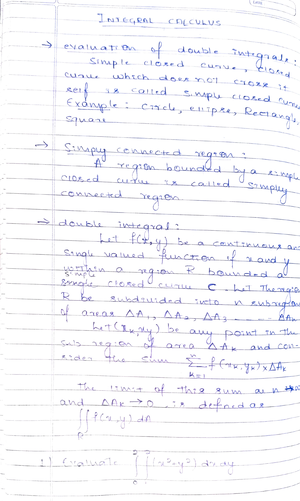 INTEGRAL CALCULUS
→ evaluation of double integrals:
Simple closed curve, closed
curve which does not cross it
self is called simple closed curve
Example: Circle, ellipse, Rectangle,
square
→ Simply connected region:
A region bounded by a simple
closed curve is called simply
connected region
→ double integral:
Let f(x,y) be a continuous and
single valued function of x and y
within a region R bounded a
simple closed curve C. Let the region
R be subdivided into n subregions
of areas ΔA₁, ΔA₂, ΔA₃ ..... ΔAₙ
Let (xₖ,yₖ) be any point in the
sub region of area ΔAₖ and con-
sider the sum Σ f(xₖ,yₖ) × ΔAₖ
k=1
The limit of this sum as n→∞
and ΔAₖ → 0, is defined as
∫∫ f(x,y) dA
1) Evaluate ∫∫ (x²+y²) dx dy